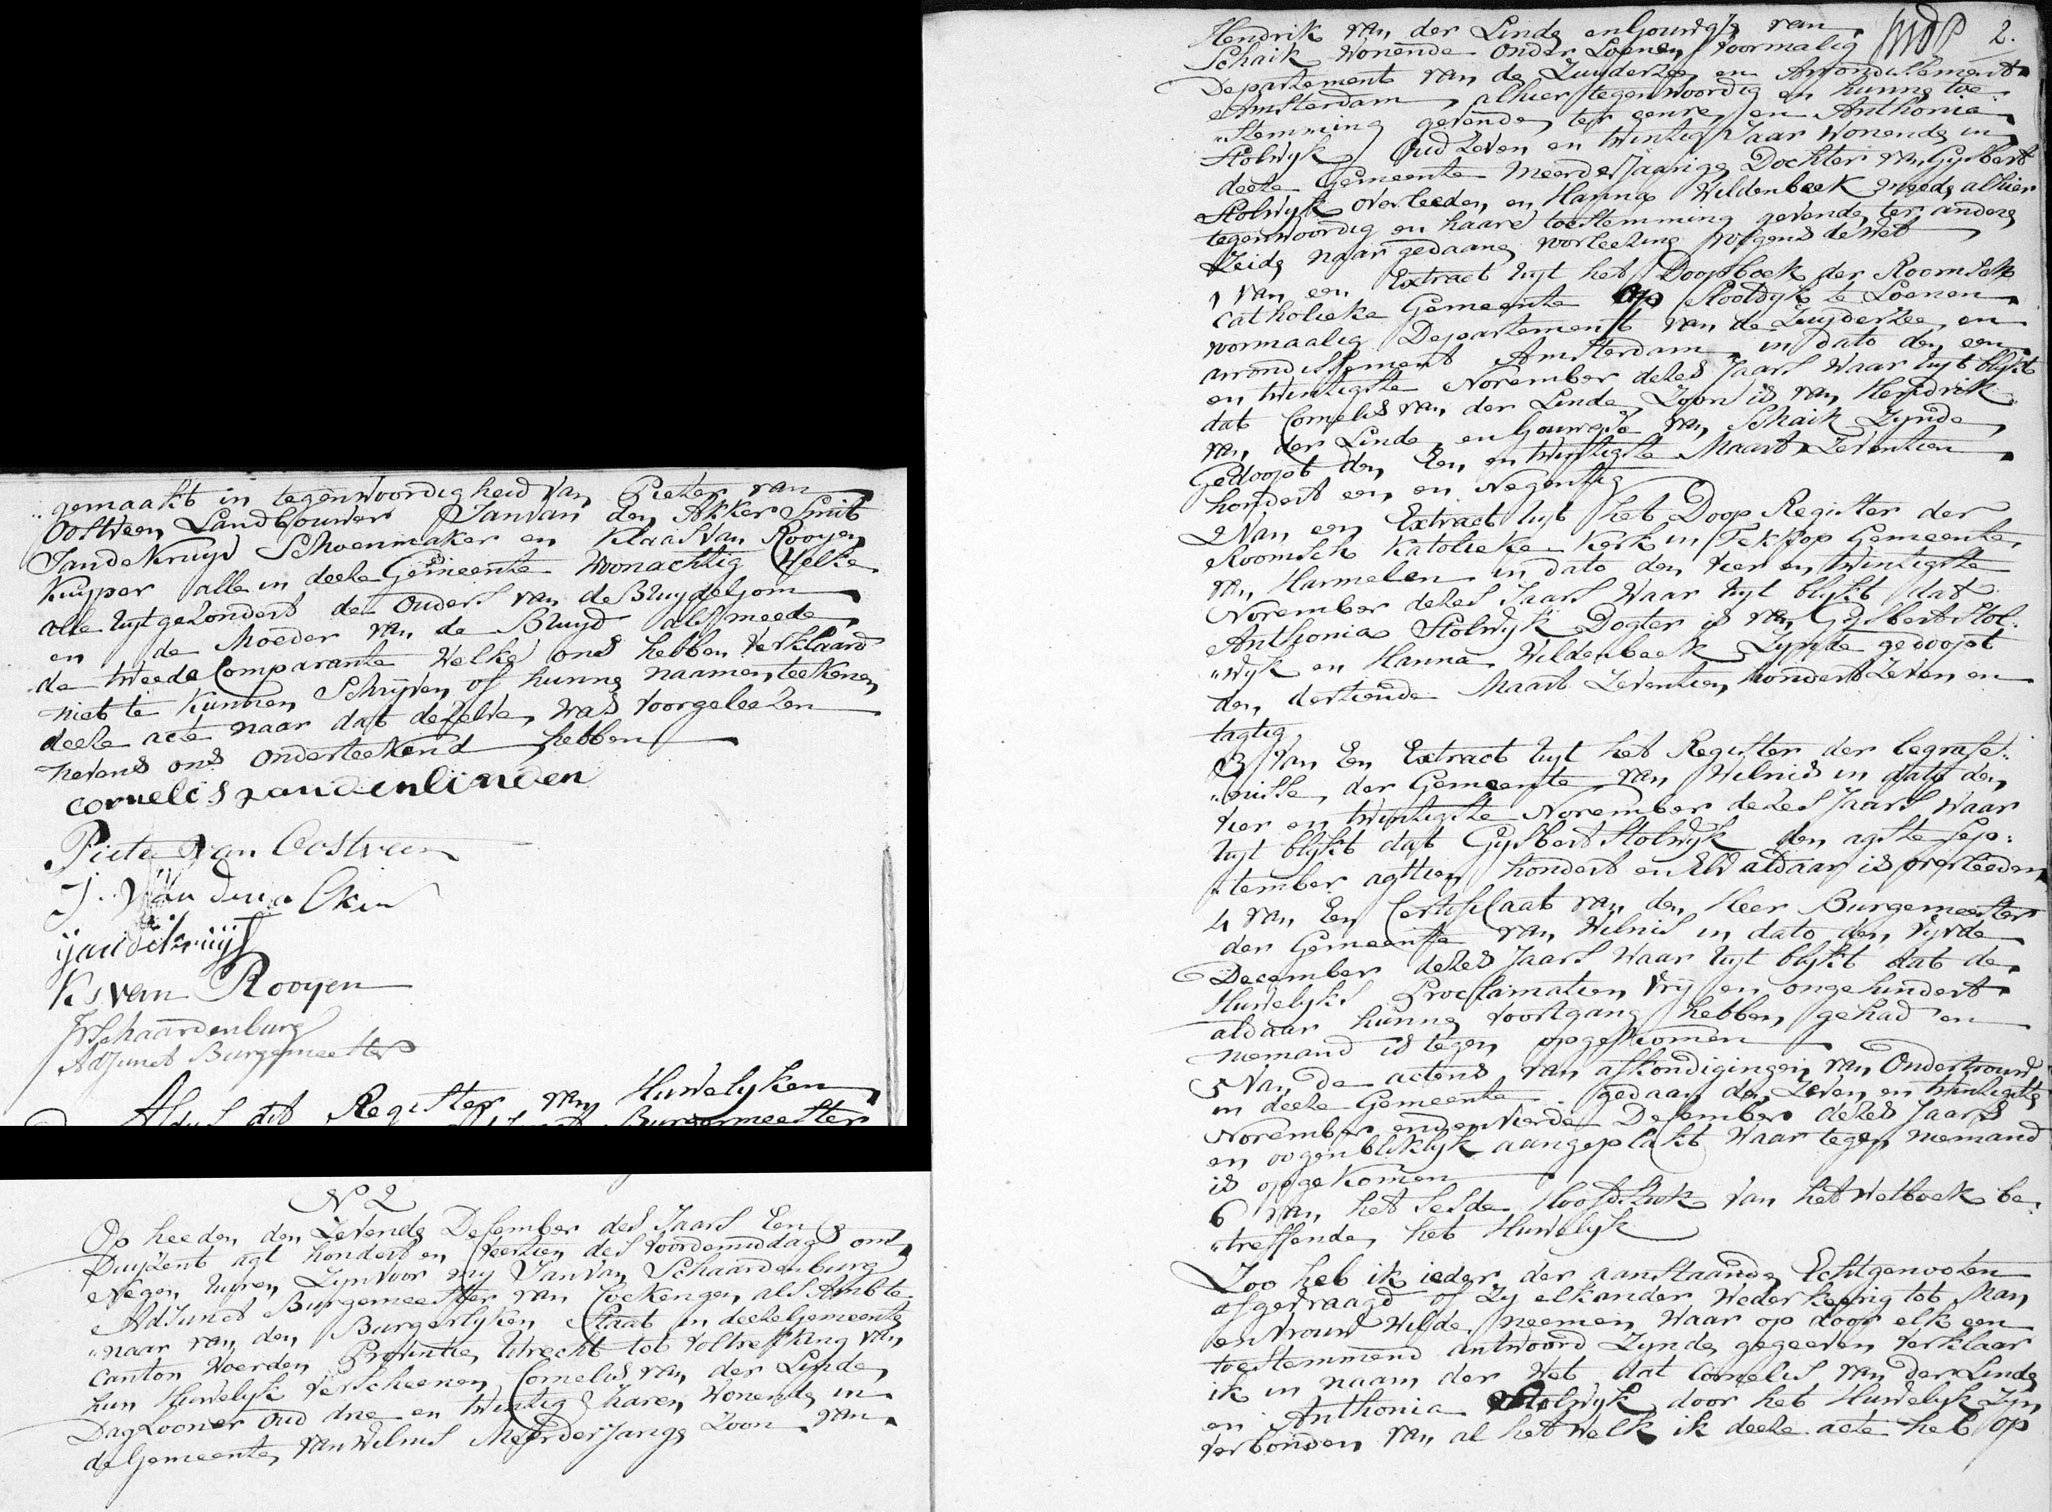 N 2
Op heeden den Zevende Desember des Jaars Een
Duyzent agt hondert en Veertien des voordemiddags om
Negen uyren Zyn voor my Jan van Schaardenburg
AdJunct Burgemeester van Cockengen als Ambte„
„naar van den Burgerlyken Staat in deeze Gemeente
Canton Woerden Provintie Utrecht tot voltrekking van
hun Huwelyk verscheenen Cornelis van der Linde
DagLooner oud drie en twintig Jaren Wonende in
de Gemeente van Wilnis MeerderJarige Zoon van
2.
Hendrik van der Linde en Gouwtje van
Schaik Wonende onder Loenen voormalig
Departement van de Zuyderzee en Arrondissement
Amsterdam alhier tegenwoordig en hunne toe„
„stemming gevende ter eenre, en Anthonia
Stolwyk Oud Zeven en twintig Jaar Wonende in
deeze Gemeente MeerderJaarige Dochter van Gysbert
Stolwyk overleeden, en Hanna Wildenbeek meede alhier
tegenwoordig en haare toestemming gevende ter andere
Zeide naar gedaane voorleezing volgens de Wet
1 Van een Extract uyt het Doopboek der Roomsch
Catholieke Gemeente op Slootdyk te Loenen
voormaalig Departement van de Zuyderzee en
arrondissement Amsterdam in dato den een
en twintigste November dezes Jaars Waar uyt blykt
dat Cornelis van der Linde Zoon is van Hendrik
van der Linde en Gouwtje van Schaik Zynde
Gedoopt den Een en twintigste Maart Zeventien
hondert een en Negentig
2 Van een Extract uyt het Doop Register der
Roomsch Katolieke Kerk in Tekkop Gemeente
van Harmelen in dato den vier en twintigste
November dezes Jaars Waar uyt blykt dat
Anthonia Stolwyk Dogter is van Gysbert Stol„
„wyk en Hanna Wildenbeek Zynde gedoopt
den dertiende Maart Zeventien hondert Zeven en
tagtig
3 Van Een Extract uyt het Register der begrafe„
„nisse der Gemeente van Wilnis in dato den
vier en twintigste November dezes Jaars Waar
uyt blykt dat Gysbert Stolwyk den agste Sep„
„tember agttien hondert en Elf aldaar is overleeden
4 van Een Certificaat van den Heer Burgemeester
der Gemeente van Wilnis in dato den vyvde
December dezes Jaars Waar uyt blykt dat de
Huwelyks Proclamatien vry en ongehindert
aldaar hunne voortgang hebben gehad en
niemand is tegen opgekomen
5 Van de actens van afkondigingen van Ondertrouw
in deeze Gemeente gedaan den Zeven en twintigste
November en den Vierde Desember dezes Jaars
en oogenbliklyk aangeplakt Waar tegen niemand
is opgekomen
6 van het Sesde Hoofdstuk van het Wetboek be„
„treffende het Huwelyk
Zoo heb ik ieder der aanstaande Echtgenooten
afgevraagd of Zy elkander Wederkeerig tot Man
en Vrouw Wilde neemen Waar op door elk een
toestemmend antwoord Zynde gegeeven verklaar
ik in naam der Wet dat Cornelis van der Linde
en Anthonia Stolwyk door het Huwelyk Zyn
verbonden van al het Welk ik deeze acte heb op
„gemaakt in tegenwoordigheid van Pieter van
Oostveen Landbouwer Jan van den Akker Smit
Jan de Kruyf Schoenmaker en Klaas van Rooyen
Kuyper alle in deeze Gemeente Woonachtig Welke
alle uytgezondert de Ouders van de Bruydegom
en de Moeder van de Bruyd als meede
de tweede Comparante Welke ons hebben verklaard
niet te kunnen Schryven of hunne naamen teekenen
deeze acte naar dat dezelve was voorgeleezen
nevens ons onderteekend hebben
cornelis van den linden
Pieter van Oostveen
J. van den Aker
ijan de kruijf
Ks van Rooyen
JvSchaardenburg
AdJunct Burgemeester
Aldus dit Register van Huwelyken
Burgermeester